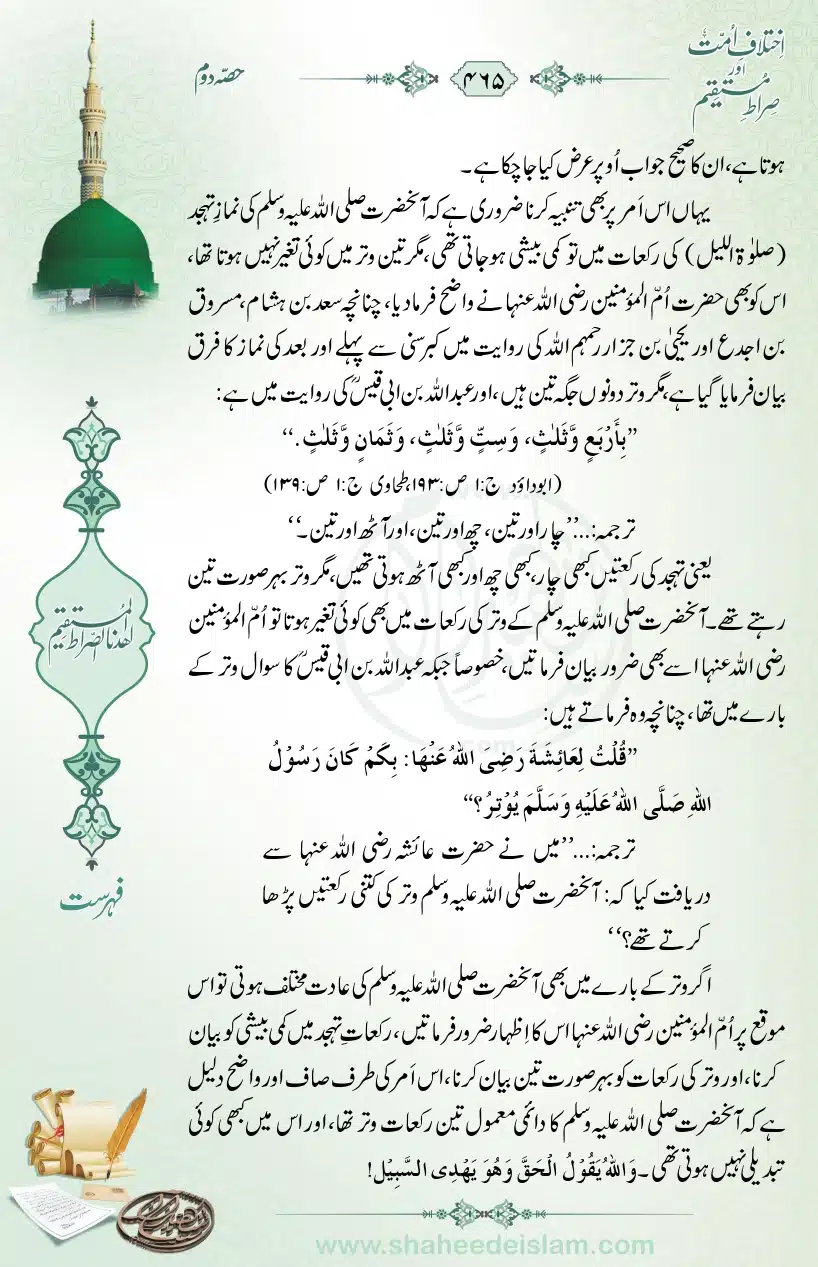 اِختلافِ اُمّت
اور
صِراطِ مُستقیم
۴۶۵
حصّہ دوم
ہوتا ہے، ان کا صحیح جواب اُوپر عرض کیا جاچکا ہے۔
یہاں اس اَمر پر بھی تنبیہ کرنا ضروری ہے کہ آنحضرت صلی اللہ علیہ وسلم کی نمازِ تہجد
(صلوٰۃ اللیل) کی رکعات میں تو کمی بیشی ہوجاتی تھی، مگر تین وتر میں کوئی تغیر نہیں ہوتا تھا،
اس کو بھی حضرت اُمّ المؤمنین رضی اللہ عنہا نے واضح فرمادیا، چنانچہ سعد بن ہشام، مسروق
بن اجدع اور یحییٰ بن جزار رحمہم اللہ کی روایت میں کبرسنی سے پہلے اور بعد کی نماز کا فرق
بیان فرمایا گیا ہے، مگر وتر دونوں جگہ تین ہیں، اور عبداللہ بن ابی قیسؒ کی روایت میں ہے:
”بِأَرْبَعٍ وَّثَلٰثٍ، وَسِتٍّ وَّثَلٰثٍ، وَثَمَانٍ وَّثَلٰثٍ.“
(ابوداؤد ج:۱ ص:۱۹۳، طحاوی ج:۱ ص:۱۳۹)
ترجمہ:...’’چار اور تین، چھ اور تین، اور آٹھ اور تین۔‘‘
یعنی تہجد کی رکعتیں کبھی چار، کبھی چھ اور کبھی آٹھ ہوتی تھیں، مگر وتر بہرصورت تین
رہتے تھے۔ آنحضرت صلی اللہ علیہ وسلم کے وتر کی رکعات میں بھی کوئی تغیر ہوتا تو اُمّ المؤمنین
رضی اللہ عنہا اسے بھی ضرور بیان فرماتیں، خصوصاً جبکہ عبداللہ بن ابی قیسؒ کا سوال وتر کے
بارے میں تھا، چنانچہ وہ فرماتے ہیں:
”قُلْتُ لِعَائِشَةَ رَضِیَ اللهُ عَنْهَا: بِکَمْ کَانَ رَسُوْلُ
اللهِ صَلَّی اللهُ عَلَیْهِ وَسَلَّمَ یُوْتِرُ؟“
ترجمہ:...’’میں نے حضرت عائشہ رضی اللہ عنہا سے
دریافت کیا کہ: آنحضرت صلی اللہ علیہ وسلم وتر کی کتنی رکعتیں پڑھا
کرتے تھے؟‘‘
اگر وتر کے بارے میں بھی آنحضرت صلی اللہ علیہ وسلم کی عادت مختلف ہوتی تو اس
موقع پر اُمّ المؤمنین رضی اللہ عنہا اس کا اِظہار ضرور فرماتیں، رکعاتِ تہجد میں کمی بیشی کو بیان
کرنا، اور وتر کی رکعات کو بہرصورت تین بیان کرنا، اس اَمر کی طرف صاف اور واضح دلیل
ہے کہ آنحضرت صلی اللہ علیہ وسلم کا دائمی معمول تین رکعات وتر تھا، اور اس میں کبھی کوئی
تبدیلی نہیں ہوتی تھی۔ وَاللهُ یَقُوْلُ الْحَقَّ وَهُوَ یَهْدِی السَّبِیْل!
اهدنا الصراط المستقیم
فہرست
www.shaheedeislam.com